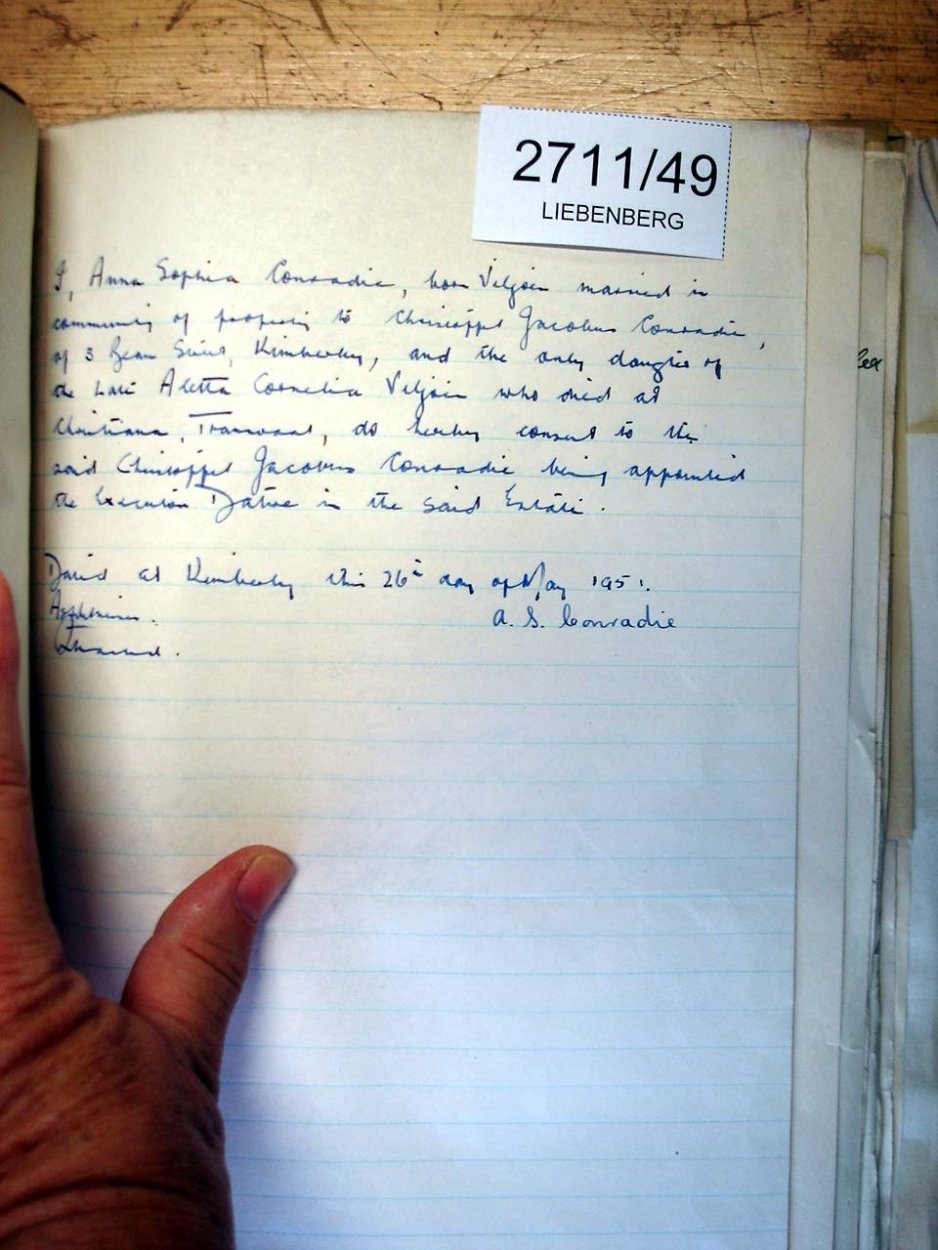 2711/49
LIEBENBERG
I, Anna Sophia Conradie, born Viljoen married in
community of property to Christoffel Jacobus Conradie,
of 3 Street, Kimberley, and the only daughter of
the late Aletta Cornelia Viljoen who died at
Christiana, Transvaal, do hereby consent to the
said Christoffel Jacobus Conradie being appointed
the Executor Dative in the said Estate.
Dated at Kimberley this 26th day of May 1951.
As Witnesses.
A. S. Conradie